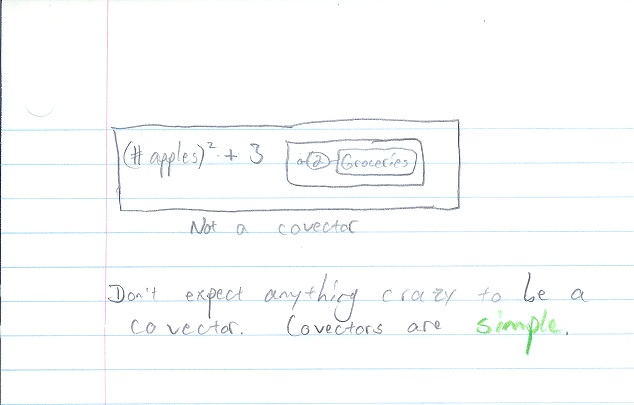 (# apples)² + 3 2 Groceries
Not a covector
Don't expect anything crazy to be a
covector. Covectors are simple.